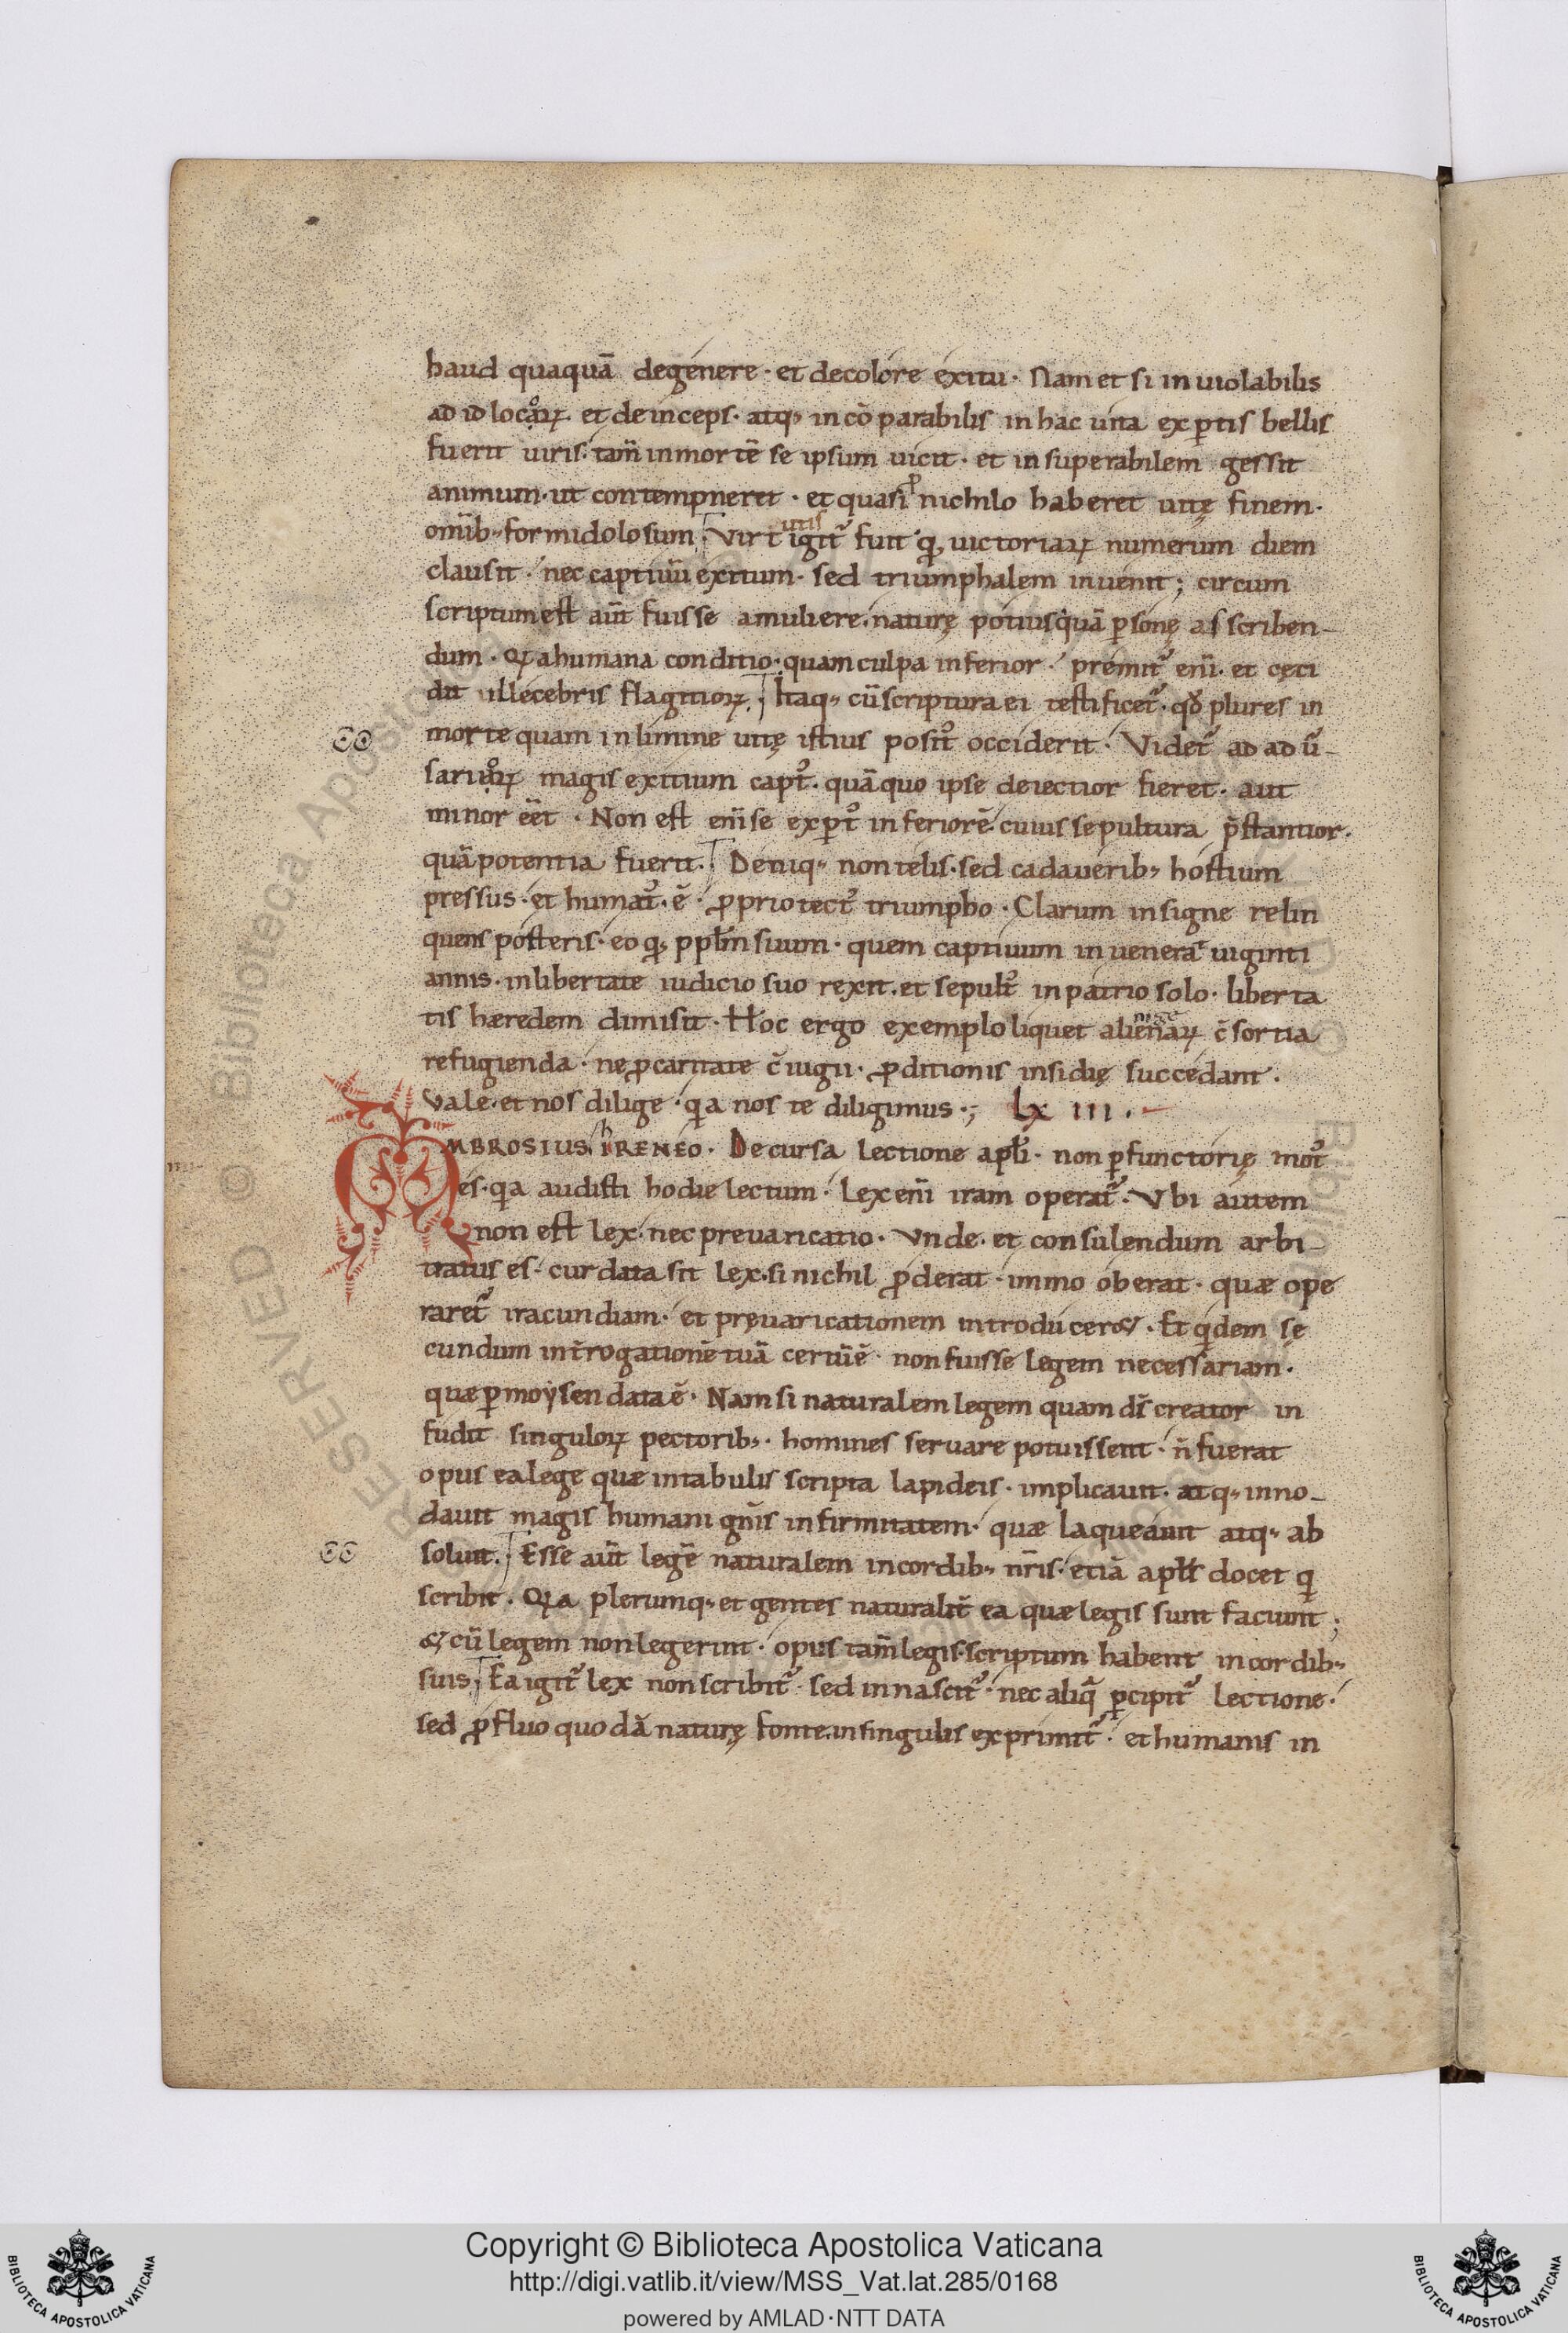 haud quaquā degenere · et decolore exitu · Nam et si inuiolabilis
ad id locoꝝ et deinceps · atq; incōparabilis in hac uita expertis bellis
fuerit uiris · tam̄ in mortē se ipsum uicit · et insuperabilem gessit
animum · ut contempneret · et quasi ꝓ nichilo haberet uitę finem ·
omīb; formidolosum · Virtutis igit᷑ fuit qđ uictoriaꝝ numerum diem
clausit · nec captiuū exitum · sed triumphalem inuenit ; circum
scriptum est aūt fuisse a muliere · naturę potius quā ꝑsonę asscriben-
dum · Qꝛ a humana conditio · quam culpa inferior · premit᷑ eni̅ · et cęci
dit illecebris flagitioꝝ · Itaq; cū scriptura ei testificet᷑ · qđ plures in
morte quam in limine uitę istius positꝰ occiderit · Videt᷑ ad adū-
sarioꝝ magis exitium captꝰ · quā quo ipse deiectior fieret · aut
minor eēt · Non est eni̅ se exꝑtꝰ inferiorē · cuius sepultura p̄stantior ·
quā potentia fuerit · Deniq; non telis · sed cadauerib; hostium
pressus · et humatꝰ · ē · ꝓprio tectꝰ triumpho · Clarum insigne relin
quens posteris · eo qđ ppl̄m suum · quem captiuum inuenera᷑ uiginti
annis · in libertate iudicio suo rexit · et sepultꝰ in patrio solo · liberta
tis hæredem dimisit · Hoc ergo exemplo liquet alienigenaꝝ c̄sortia
refugienda · ne ꝓ caritate c̄iugii · ꝓditionis insidię succedant ·
Vale · et nos dilige · qia nos te diligimus · ; LX III ·
AMBROSIUS HIRENEO · Decursa lectione apl̄i · non ꝑfunctorię motꝰ
es · qia audisti hodie lectum · Lex eni̅ iram operat᷑ · Vbi autem
non est lex · nec preuaricatio · Vnde · et consulendum arbi-
tratus es · cur data sit lex · si nichil ꝓderat · immo oberat · quæ ope
raret᷑ iracundiam · et pręuaricationem introducer& · Et qidem sę
cundum int̄rogationē tuā certū ē · non fuisse legem necessariam ·
quæ ꝑ moẏsen data ē · Nam si naturalem legem quam d̄s creator in
fudit singuloꝝ pectorib; · homines seruare potuissent · n̄ fuerat
opus ea lege quæ in tabulis scripta lapideis · implicauit · atq; inno-
dauit magis humani gn̄is infirmitatem · quæ laqueauit atq; ab
soluit · Esse aūt legē naturalem in cordib; nr̄is · etiā apl̄s docet qi
scribit · Qꝛa plerumq; et gentes naturalit̄ ea quæ legis sunt faciunt ;
& cū legem non legerint · opus tam̄ legis · scriptum habent in cordib;
suis · Ea igit᷑ lex non scribit᷑ · sed innascit᷑ · nec aliqā ꝑcipit᷑ lectione ·
sed ꝓfluo quodā naturę fonte · in singulis exprimit᷑ · et humanis in
Copyright © Biblioteca Apostolica Vaticana
http://digi.vatlib.it/view/MSS_Vat.lat.285/0168
powered by AMLAD·NTT DATA
BIBLIOTECA APOSTOLICA VATICANA
BIBLIOTECA APOSTOLICA VATICANA